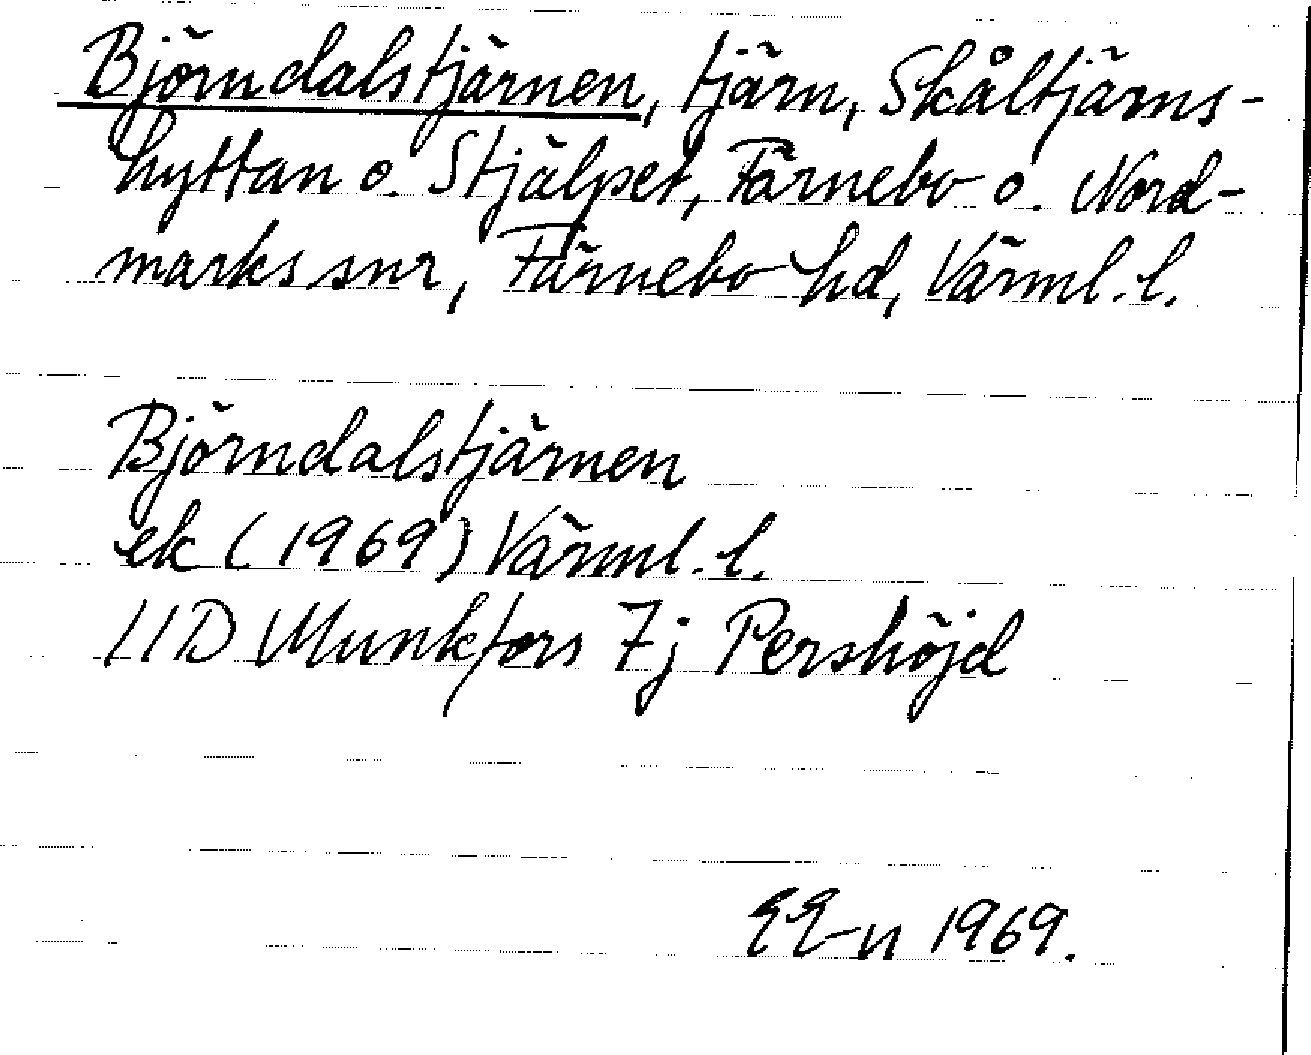 Björndalstjärnen, tjärn, Skåltjärns-
hyttan o. Stjälpet, Färnebo o. Nord-
marks snr, Färnebo hd, Värml. l.
Björndalstjärnen
ek (1969) Värml. l.
11D Munkfors 7j Pershöjd
EE-n 1969.